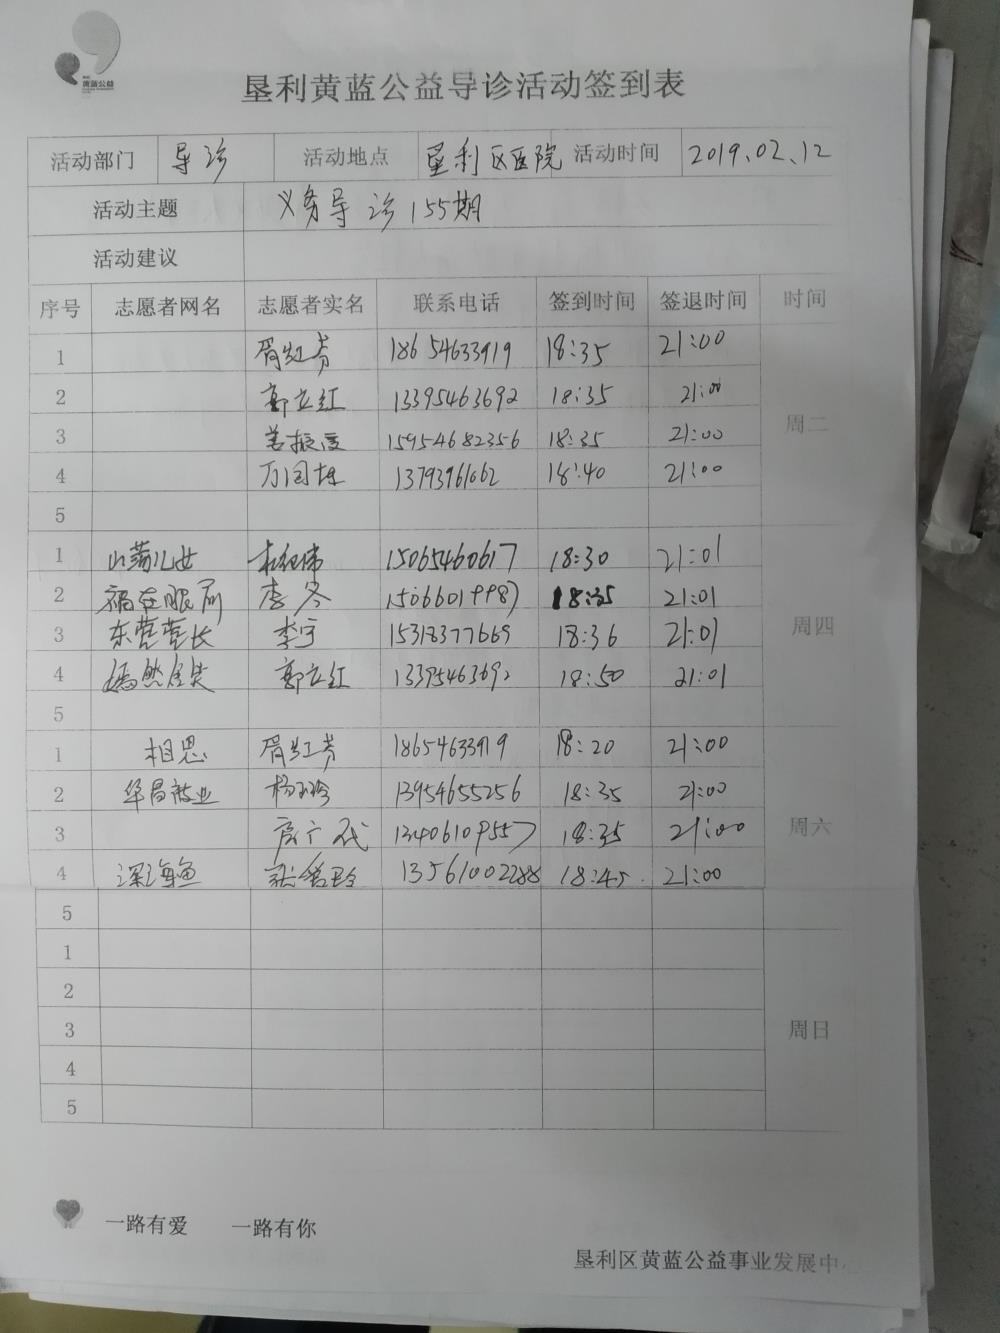 黄蓝公益
垦利黄蓝公益导诊活动签到表
活动部门 导诊 活动地点 垦利区医院 活动时间 2019.02.12
活动主题 义务导诊155期
活动建议
序号 志愿者网名 志愿者实名 联系电话 签到时间 签退时间 时间
1 胥红芳 18654633919 18:35 21:00
2 郭立红 13395463692 18:35 21:00
周二
3 15954682356 18:35 21:00
4 万国栋 13793961662 18:40 21:00
5
1 儿女 15065460617 18:30 21:01
2 福在眼前 李冬 15066019987 18:35 21:01
周四
3 东营营长 李宇 15318377669 18:36 21:01
4 嫣然一笑 郭立红 13395463692 18:50 21:01
5
1 相思 胥红芳 18654633919 18:20 21:00
2 华昌被业 13954655256 18:35 21:00
周六
3 13406109557 18:35 21:00
4 深海鱼 13561002288 18:45 21:00
5
1
2
3 周日
4
5
一路有爱 一路有你
垦利区黄蓝公益事业发展中